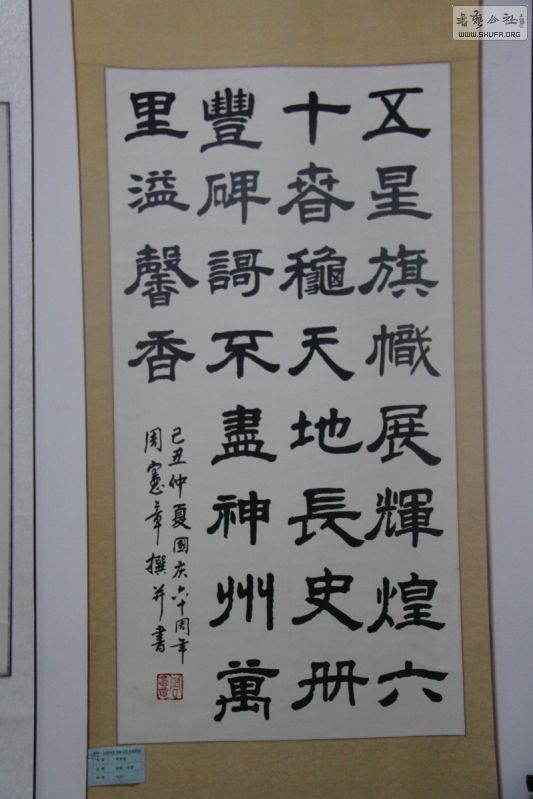 五星旗幟展輝煌六
十春龝天地長史册
豐碑謌不盡神州萬
里溢馨香
己丑仲夏國庆六十周年
周憲章撰并書
书艺公社
WWW.SHUFA.ORG